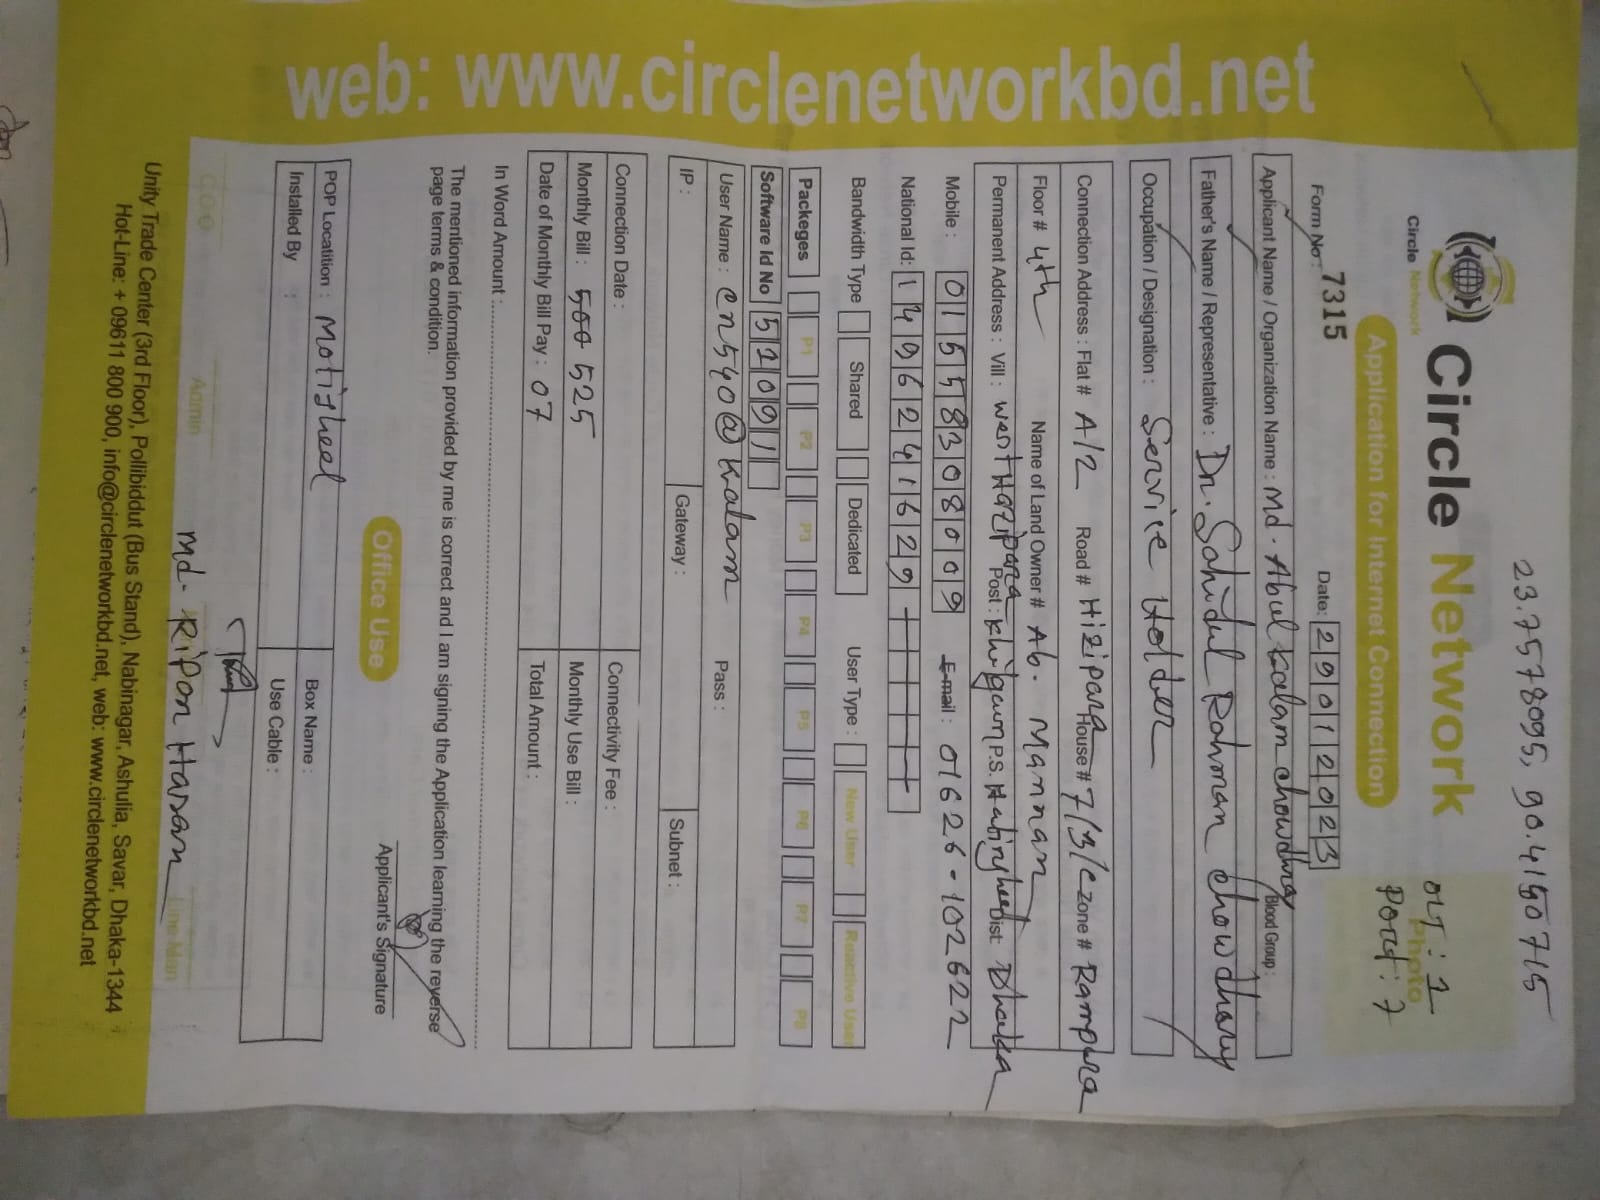 23.7578095, 90.4150715
Circle Network
Circle Network
OLT : 1
Port : 7
Photo
Application for Internet Connection
Form No : 7315 Date: 29012023
Applicant Name / Organization Name : Md. Abul Kalam chowdhury Blood Group :
Father's Name / Representative : Dr. Sahidul Rahman chowdhury
Occupation / Designation : Service Holder
Connection Address : Flat # A/2 Road # Hizipara House # 7/3/C Zone # Rampura
Floor # 4th Name of Land Owner # Ab. Mannan
Permanent Address : Vill : west Hazipara Post : khilgaum P.S. Dist: Dhaka
Mobile : 01558308009 E-mail : 01626-102622
National Id: 1496224161629
Bandwidth Type Shared Dedicated User Type : New User Reactive User
Packeges P1 P2 P3 P4 P5 P6 P7 P8
Software Id No 512091
User Name : cn540@kalam Pass :
IP : Gateway : Subnet :
Connection Date : Connectivity Fee :
Monthly Bill : 500 525 Monthly Use Bill :
Date of Monthly Bill Pay : 07 Total Amount :
In Word Amount :
The mentioned information provided by me is correct and I am signing the Application learning the reverse
page terms & condition.
Applicant's Signature
Office Use
POP Locatition : Motijheel Box Name :
Installed By : Use Cable :
Md. Ripon Hasan
COO Admin Line Man
Unity Trade Center (3rd Floor), Pollibiddut (Bus Stand), Nabinagar, Ashulia, Savar, Dhaka-1344
Hot-Line: + 09611 800 900, info@circlenetworkbd.net, web: www.circlenetworkbd.net
web: www.circlenetworkbd.net